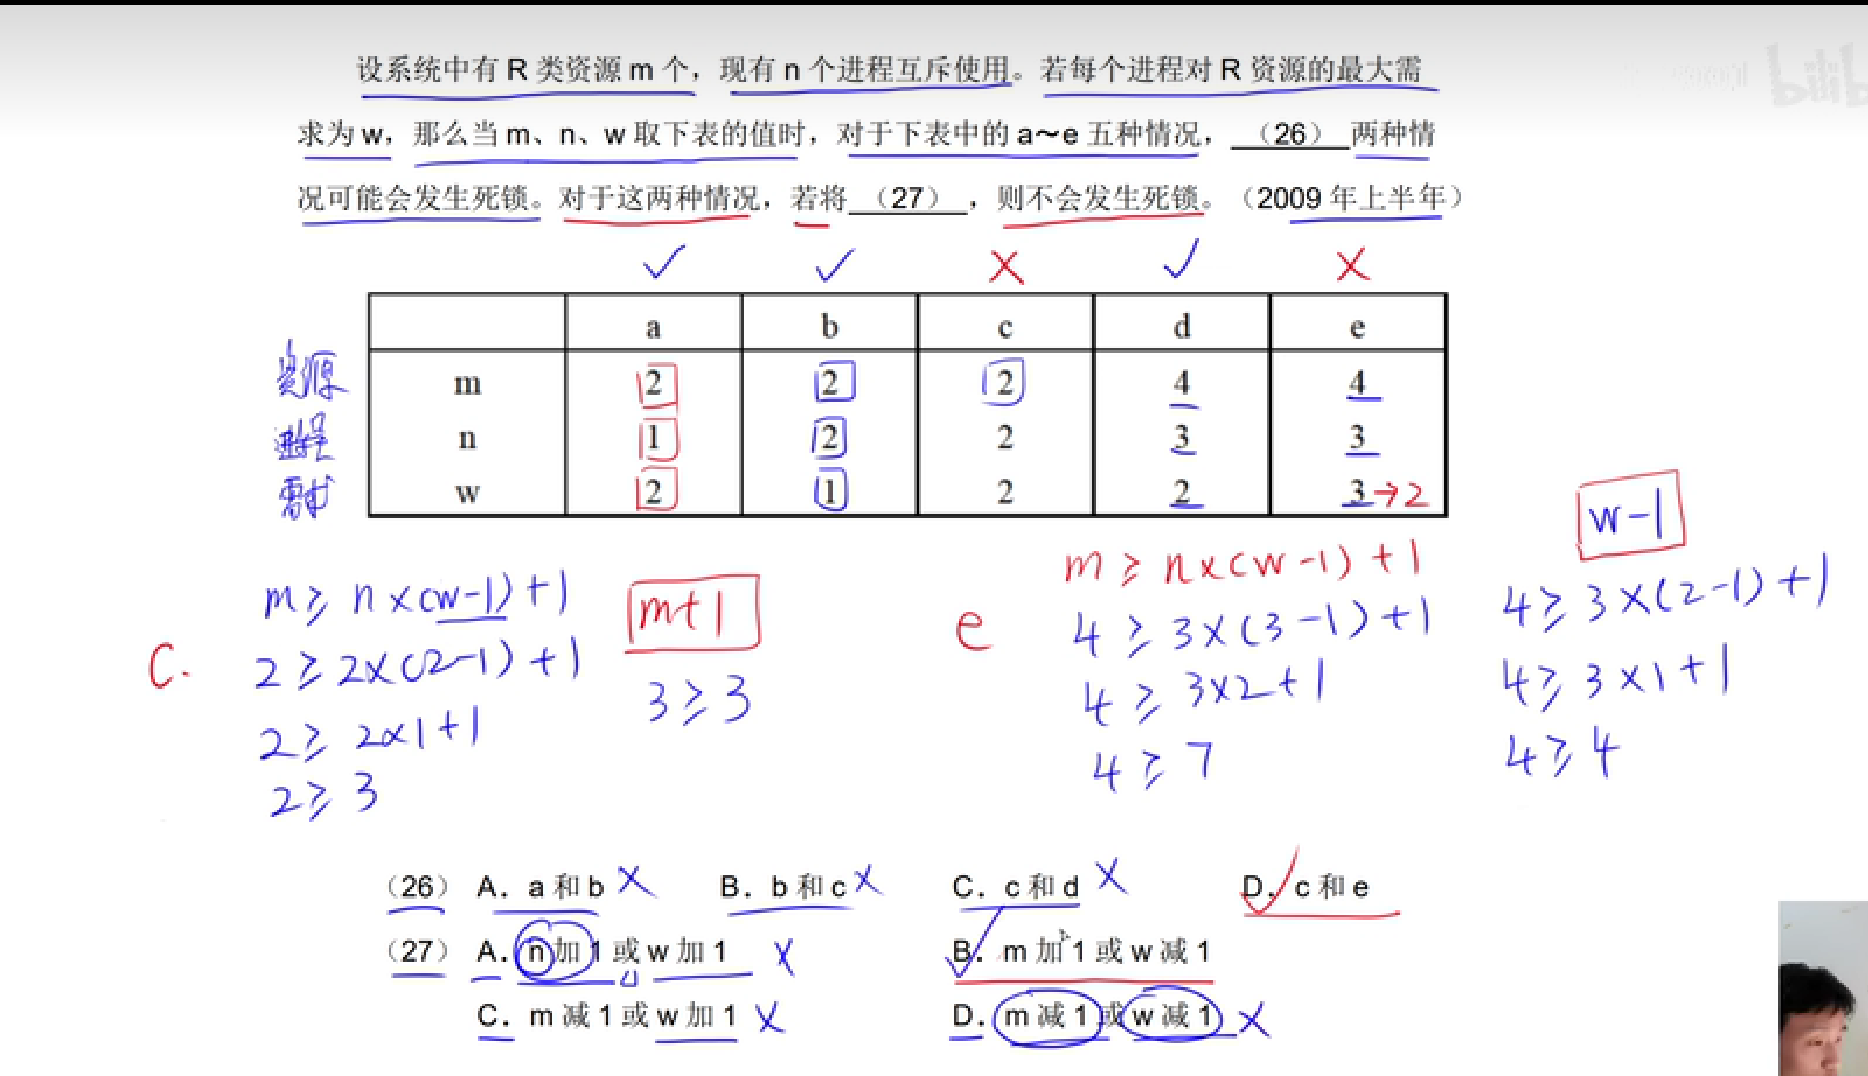 设系统中有 R 类资源 m 个，现有 n 个进程互斥使用。若每个进程对 R 资源的最大需
求为 w，那么当 m、n、w 取下表的值时，对于下表中的 a～e 五种情况，（26）两种情
况可能会发生死锁。对于这两种情况，若将（27），则不会发生死锁。（2009 年上半年）
✓ ✓ × ✓ ×
a b c d e
资源 m 2 2 2 4 4
进程 n 1 2 2 3 3
需求 w 2 1 2 2 3→2
w-1
m≥n×(w-1)+1
m+1
m≥n×(w-1)+1
C. 2≥2×(2-1)+1
3≥3
e 4≥3×(3-1)+1
4≥3×(2-1)+1
2≥2×1+1
4≥3×2+1
4≥3×1+1
2≥3
4≥7
4≥4
（26） A. a 和 b × B. b 和 c × C. c 和 d × D. ✓ c 和 e
（27） A. n 加 1 或 w 加 1 × B. ✓ m 加 1 或 w 减 1
C. m 减 1 或 w 加 1 × D. m 减 1 或 w 减 1 ×